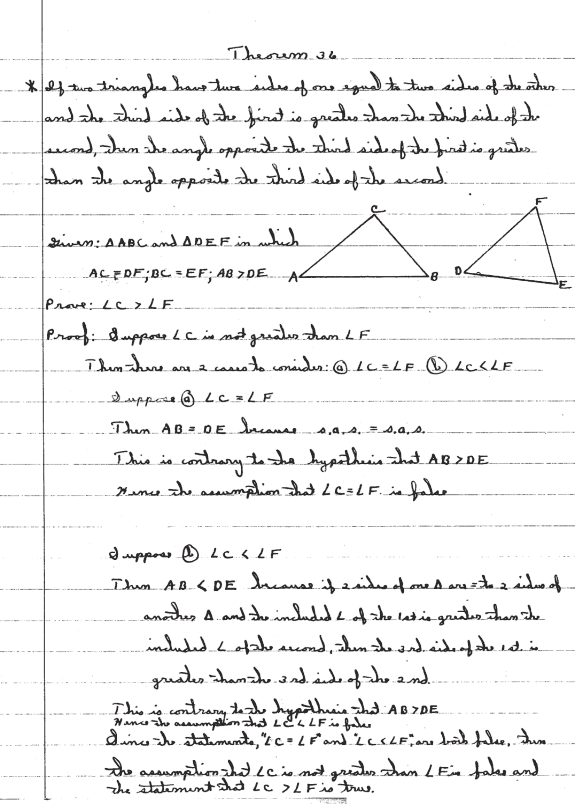 Theorem 36
* If two triangles have two sides of one equal to two sides of the other
and the third side of the first is greater than the third side of the
second, then the angle opposite the third side of the first is greater
than the angle opposite the third side of the second.
C
F
Given: △ABC and △DEF in which
AC = DF; BC = EF; AB > DE
A
B
D
E
Prove: ∠C > ∠F
Proof: Suppose ∠C is not greater than ∠F
Then there are 2 cases to consider: ⓐ ∠C = ∠F ⓑ ∠C < ∠F
Suppose ⓐ ∠C = ∠F
Then AB = DE because s.a.s. = s.a.s.
This is contrary to the hypothesis that AB > DE
Hence the assumption that ∠C = ∠F is false
Suppose ⓑ ∠C < ∠F
Then AB < DE because if 2 sides of one △ are = to 2 sides of
another △ and the included ∠ of the 1st is greater than the
included ∠ of the second, then the 3rd. side of the 1st. is
greater than the 3rd side of the 2nd
This is contrary to the hypothesis that AB > DE
Hence the assumption that ∠C < ∠F is false
Since the statements, "∠C = ∠F" and "∠C < ∠F", are both false, then
the assumption that ∠C is not greater than ∠F is false and
the statement that ∠C > ∠F is true.